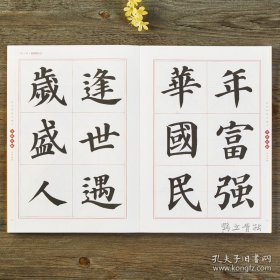 歲逢
盛世
人遇
華年
國富
民强
孔夫子旧书网